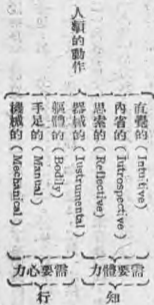 人類的動作
直覺的(Intuitive)
內省的(Iutrospective)
思索的(Reflective)
器械的(Iustrumental)
軀體的(Bodily)
手足的(Manual)
機械的(Mechanical)
需要體力
需要心力
知
行